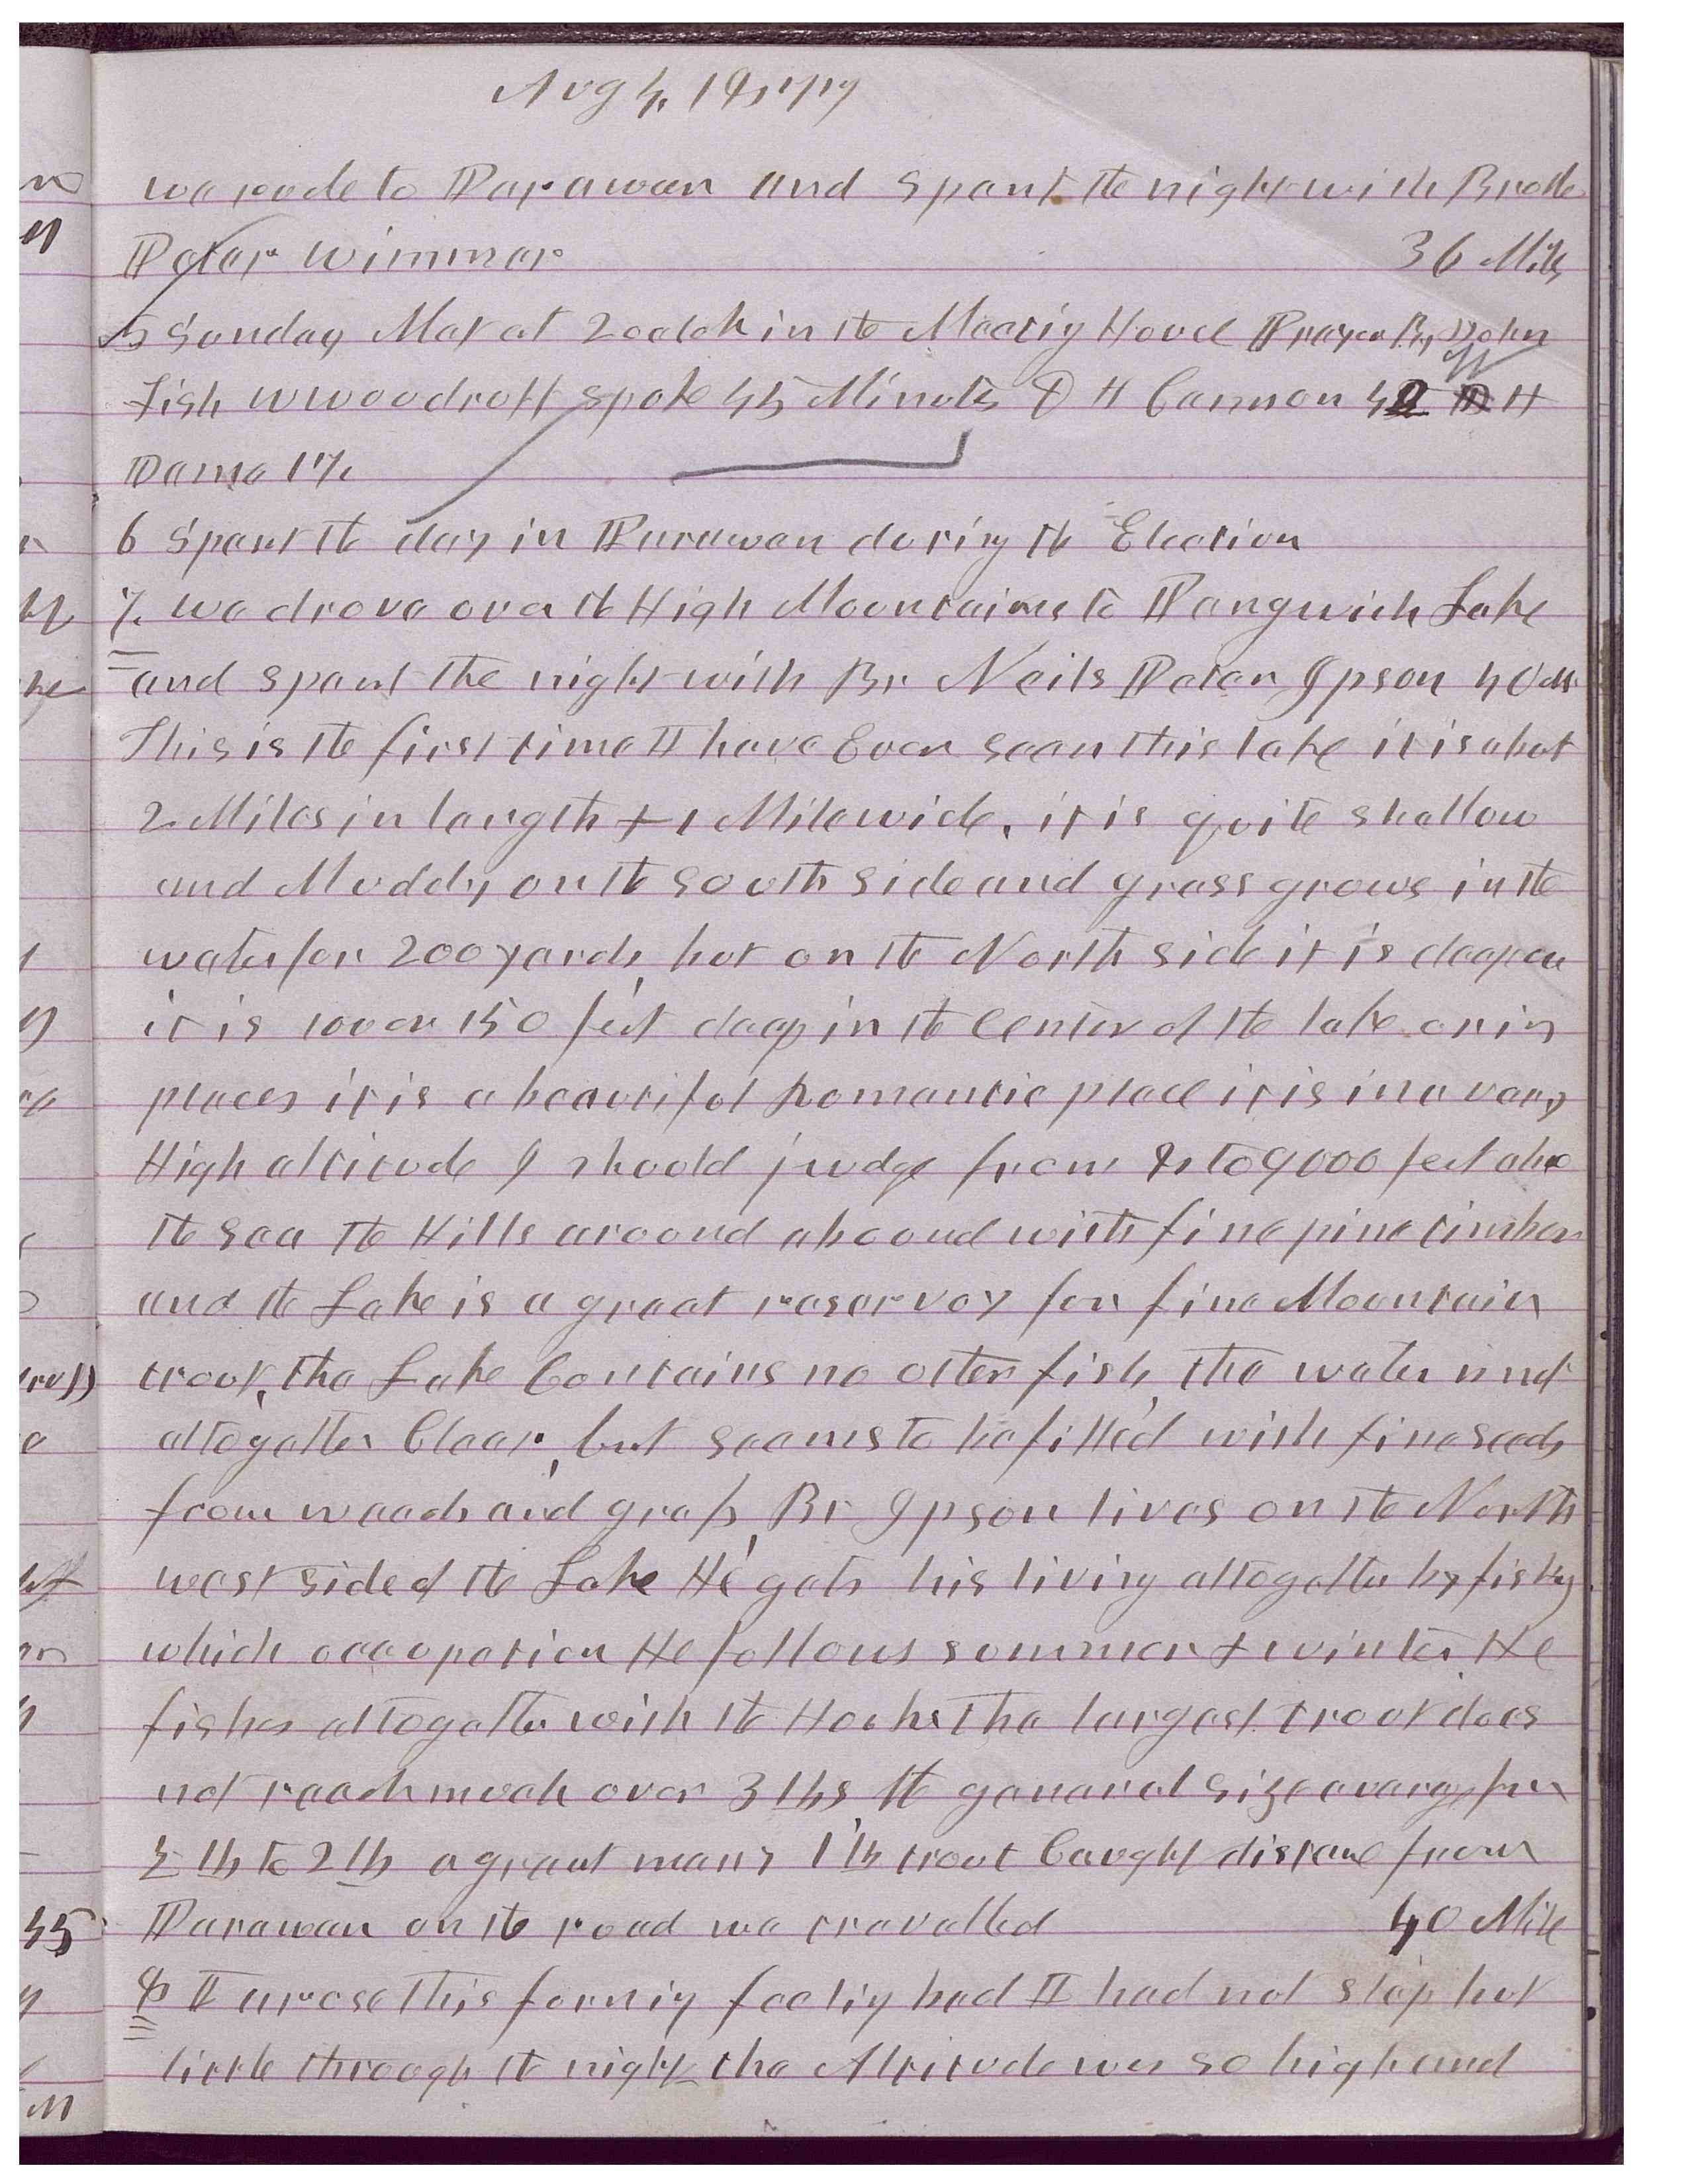 Aug 4, 1877
we rode to Parawan and spent the night with Brothe
Peter Wimmer 36 Mils
5 Sunday Met at 2 oclok in the Meetig Houce Prayer By John
Fish W Woodruff spoke 45 Minuts D H Cannon 42 H
Dame 17.
6 Spent the day in Parawan during the Election
7. we drove over the High Mountains to Pangwich Lake
and spent the night with Br Neils Peter Ipson 40 M
This is the first time I have Ever seen this lake it is about
2 Miles in length & 1 Mile wide, it is quite shallow
and Muddy on the south side and grass grows in the
water for 200 yards, but on the North side it is deeper
it is 100 or 150 feet deep in the Center of the lake or in
places it is a beautiful Romantic place it is in a very
High altitude I should judge from 8 to 9000 feet above
the sea the Hills around abound with fine pine timber
and the Lake is a great reservoy for fine Mountain
trout, the Lake Contains no other fish, the water is not
altogether Clear, but seems to be filled with fine seeds
from weeds and grass, Br Ipson lives on the North
west side of the Lake He gets his living altogether by fishig
which occupation He follows summer & winter He
fishes altogether with the Hook the largest trout does
not reach much over 3 lbs, the general size avarge from
½ lb to 2 lb a great many 1 lb trout Caught distance from
Parawan on the road we travelled 40 Mile
8 I arose this forning feelig bad I had not slep but
little through the night the Altitude was so high and